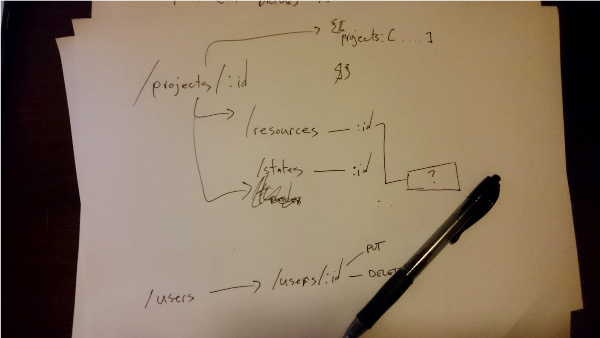 {{
projects: [ .... ]
/projects/:id
}}
/resources — :id
/states — :id
?
/users → /users/:id
PUT
DELET